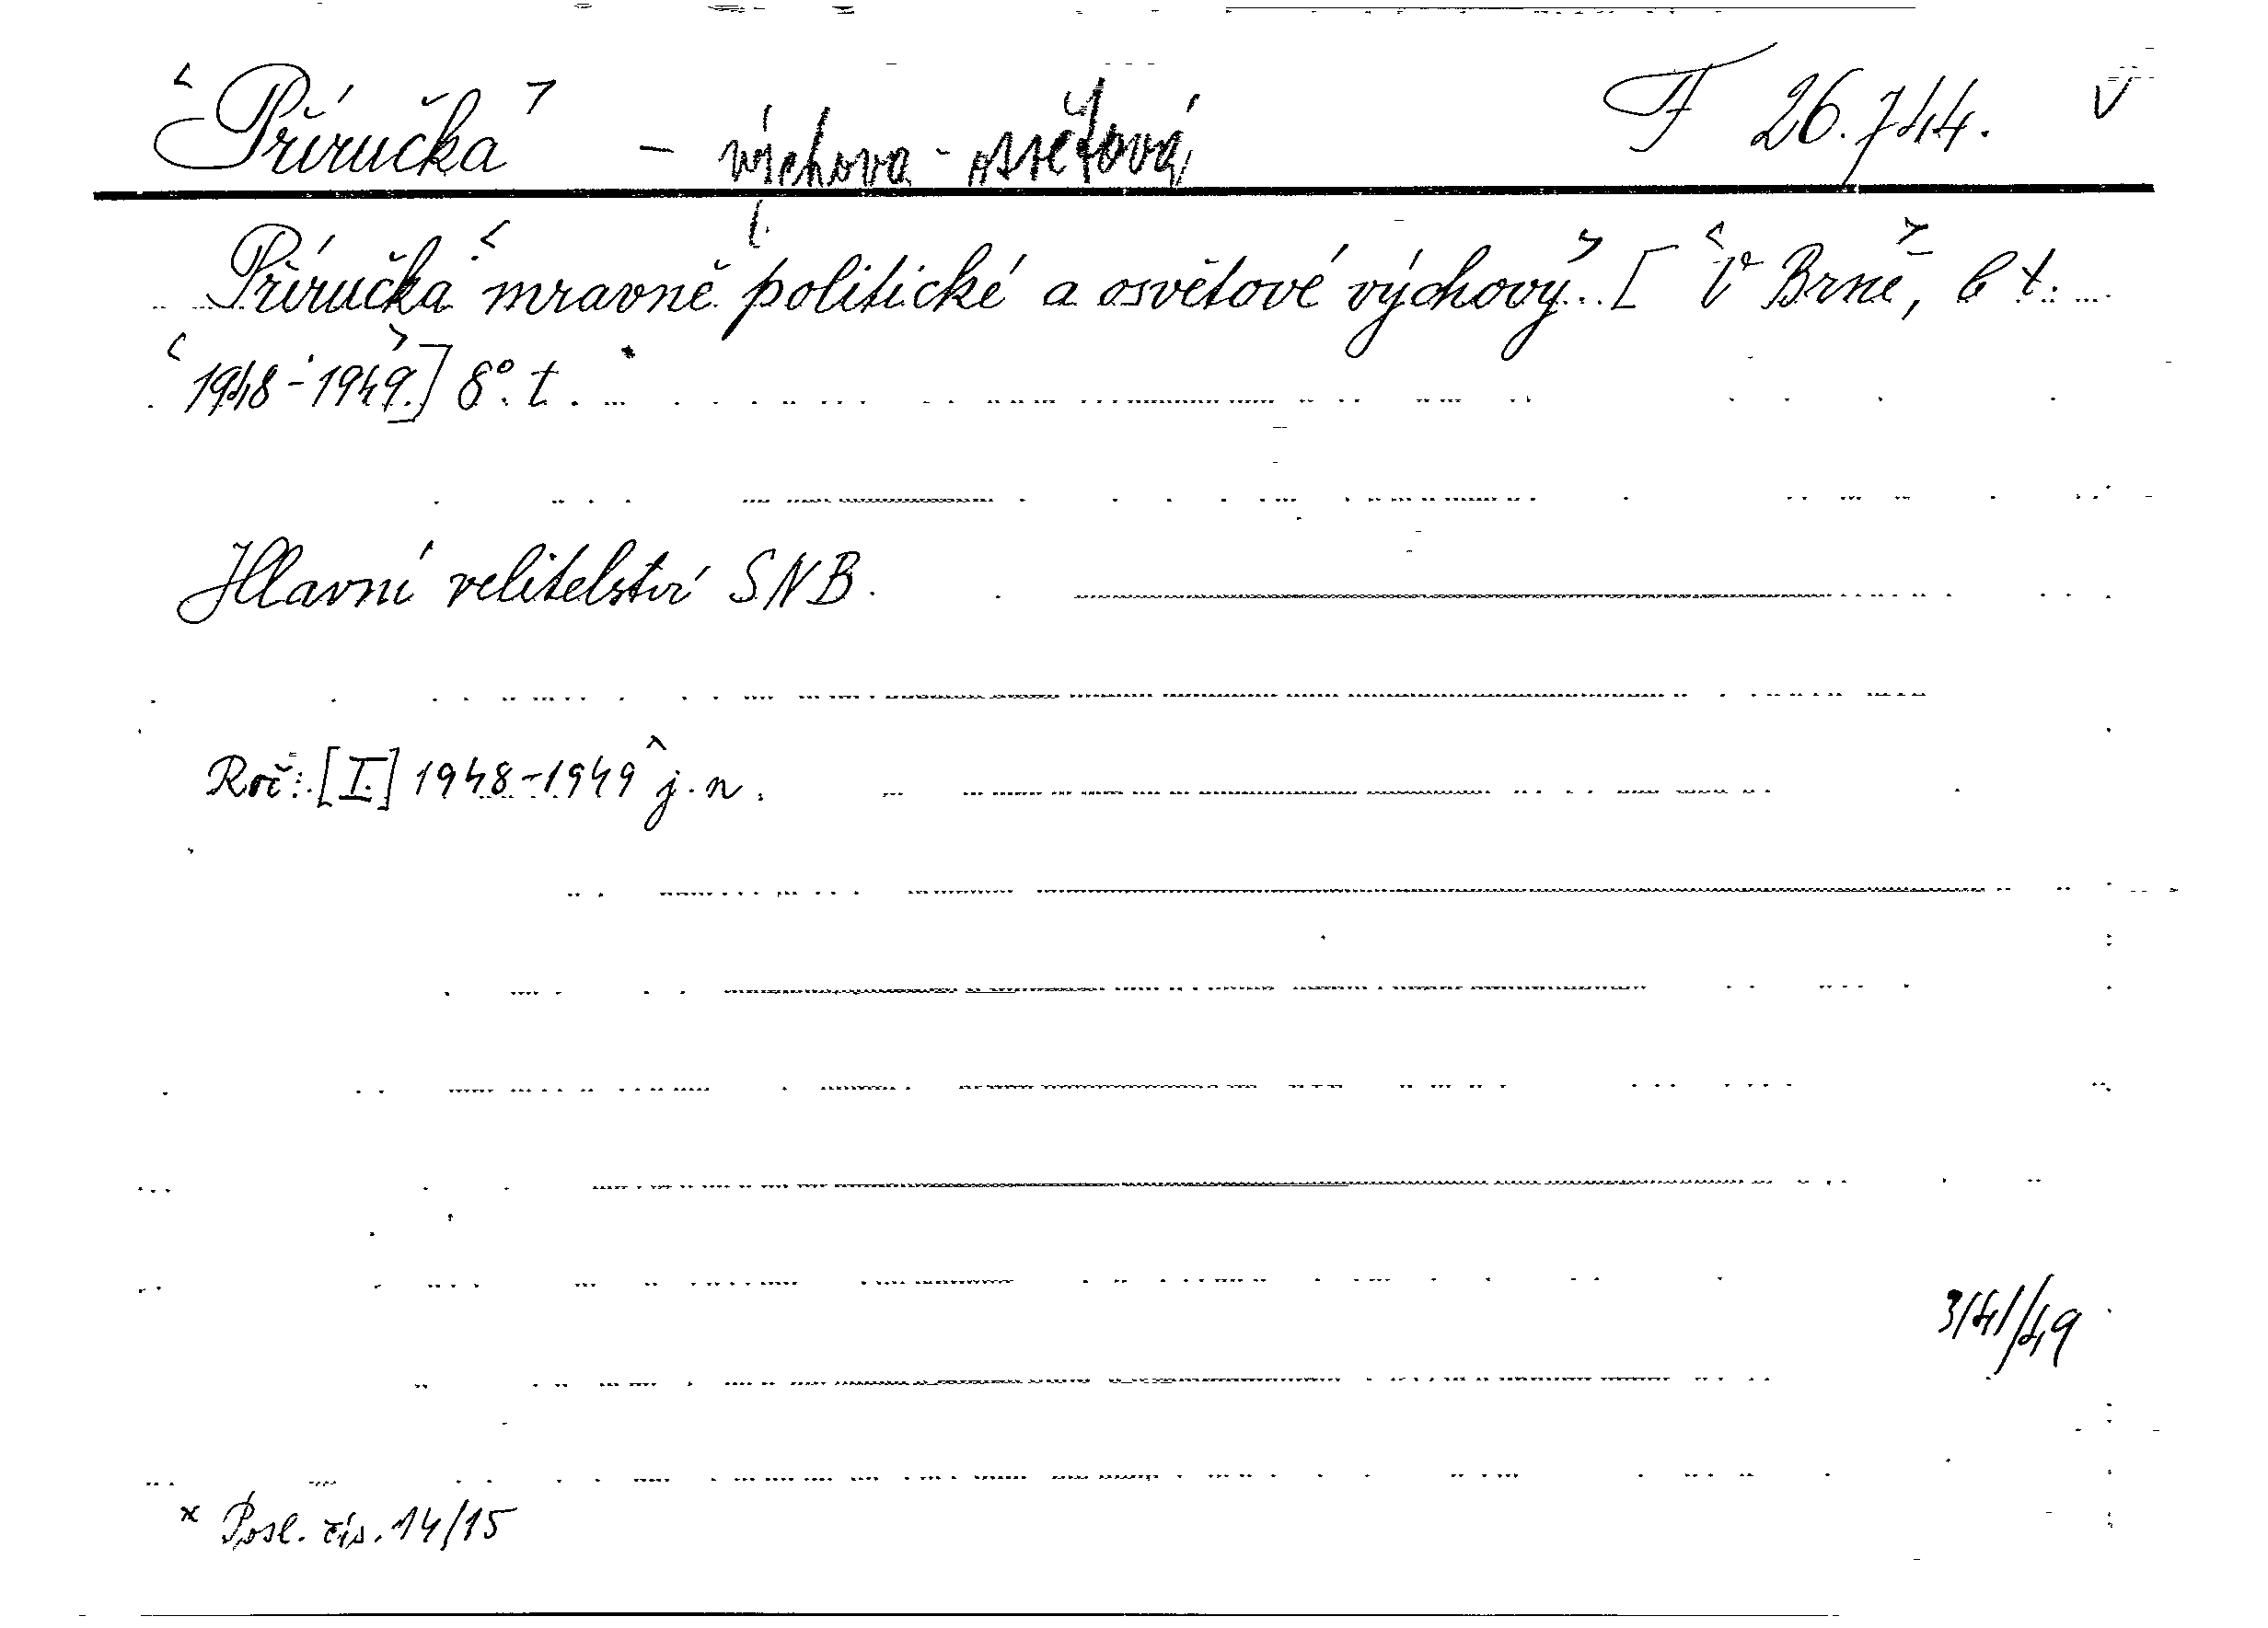 <Příručka> - výchova - osvětová F 26.744. V
Příručka <mravně politické a osvětové výchovy>. [<V Brně>, b t.
<1948-1949>.] 8° t.
Hlavní velitelství SNB.
Roč.: [I.] 1948-1949 j. n.
3/41/49
x Posl. čís. 14/15